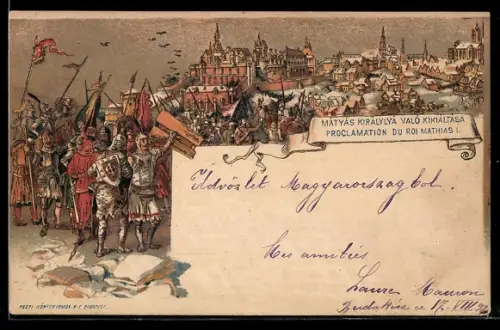 MÁTYÁS KIRÁLYLYÁ VALÓ KIKIÁLTÁSA
PROCLAMATION DU ROI MATHIAS I.
Üdvözlet Magyarországból.
Mes amitiés
Laure
Budapest le 17. VIII
PESTI KÖNYVNYOMDA R.T. BUDAPEST.